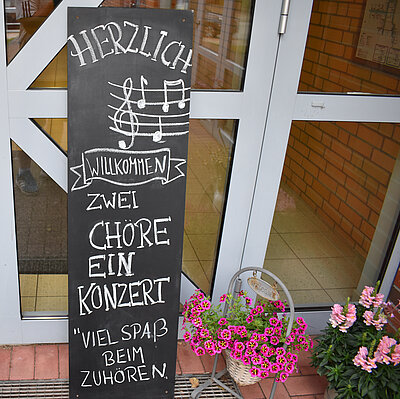 HERZLICH
WILLKOMMEN
ZWEI
CHÖRE
EIN
KONZERT
"VIEL SPAß
BEIM
ZUHÖREN.